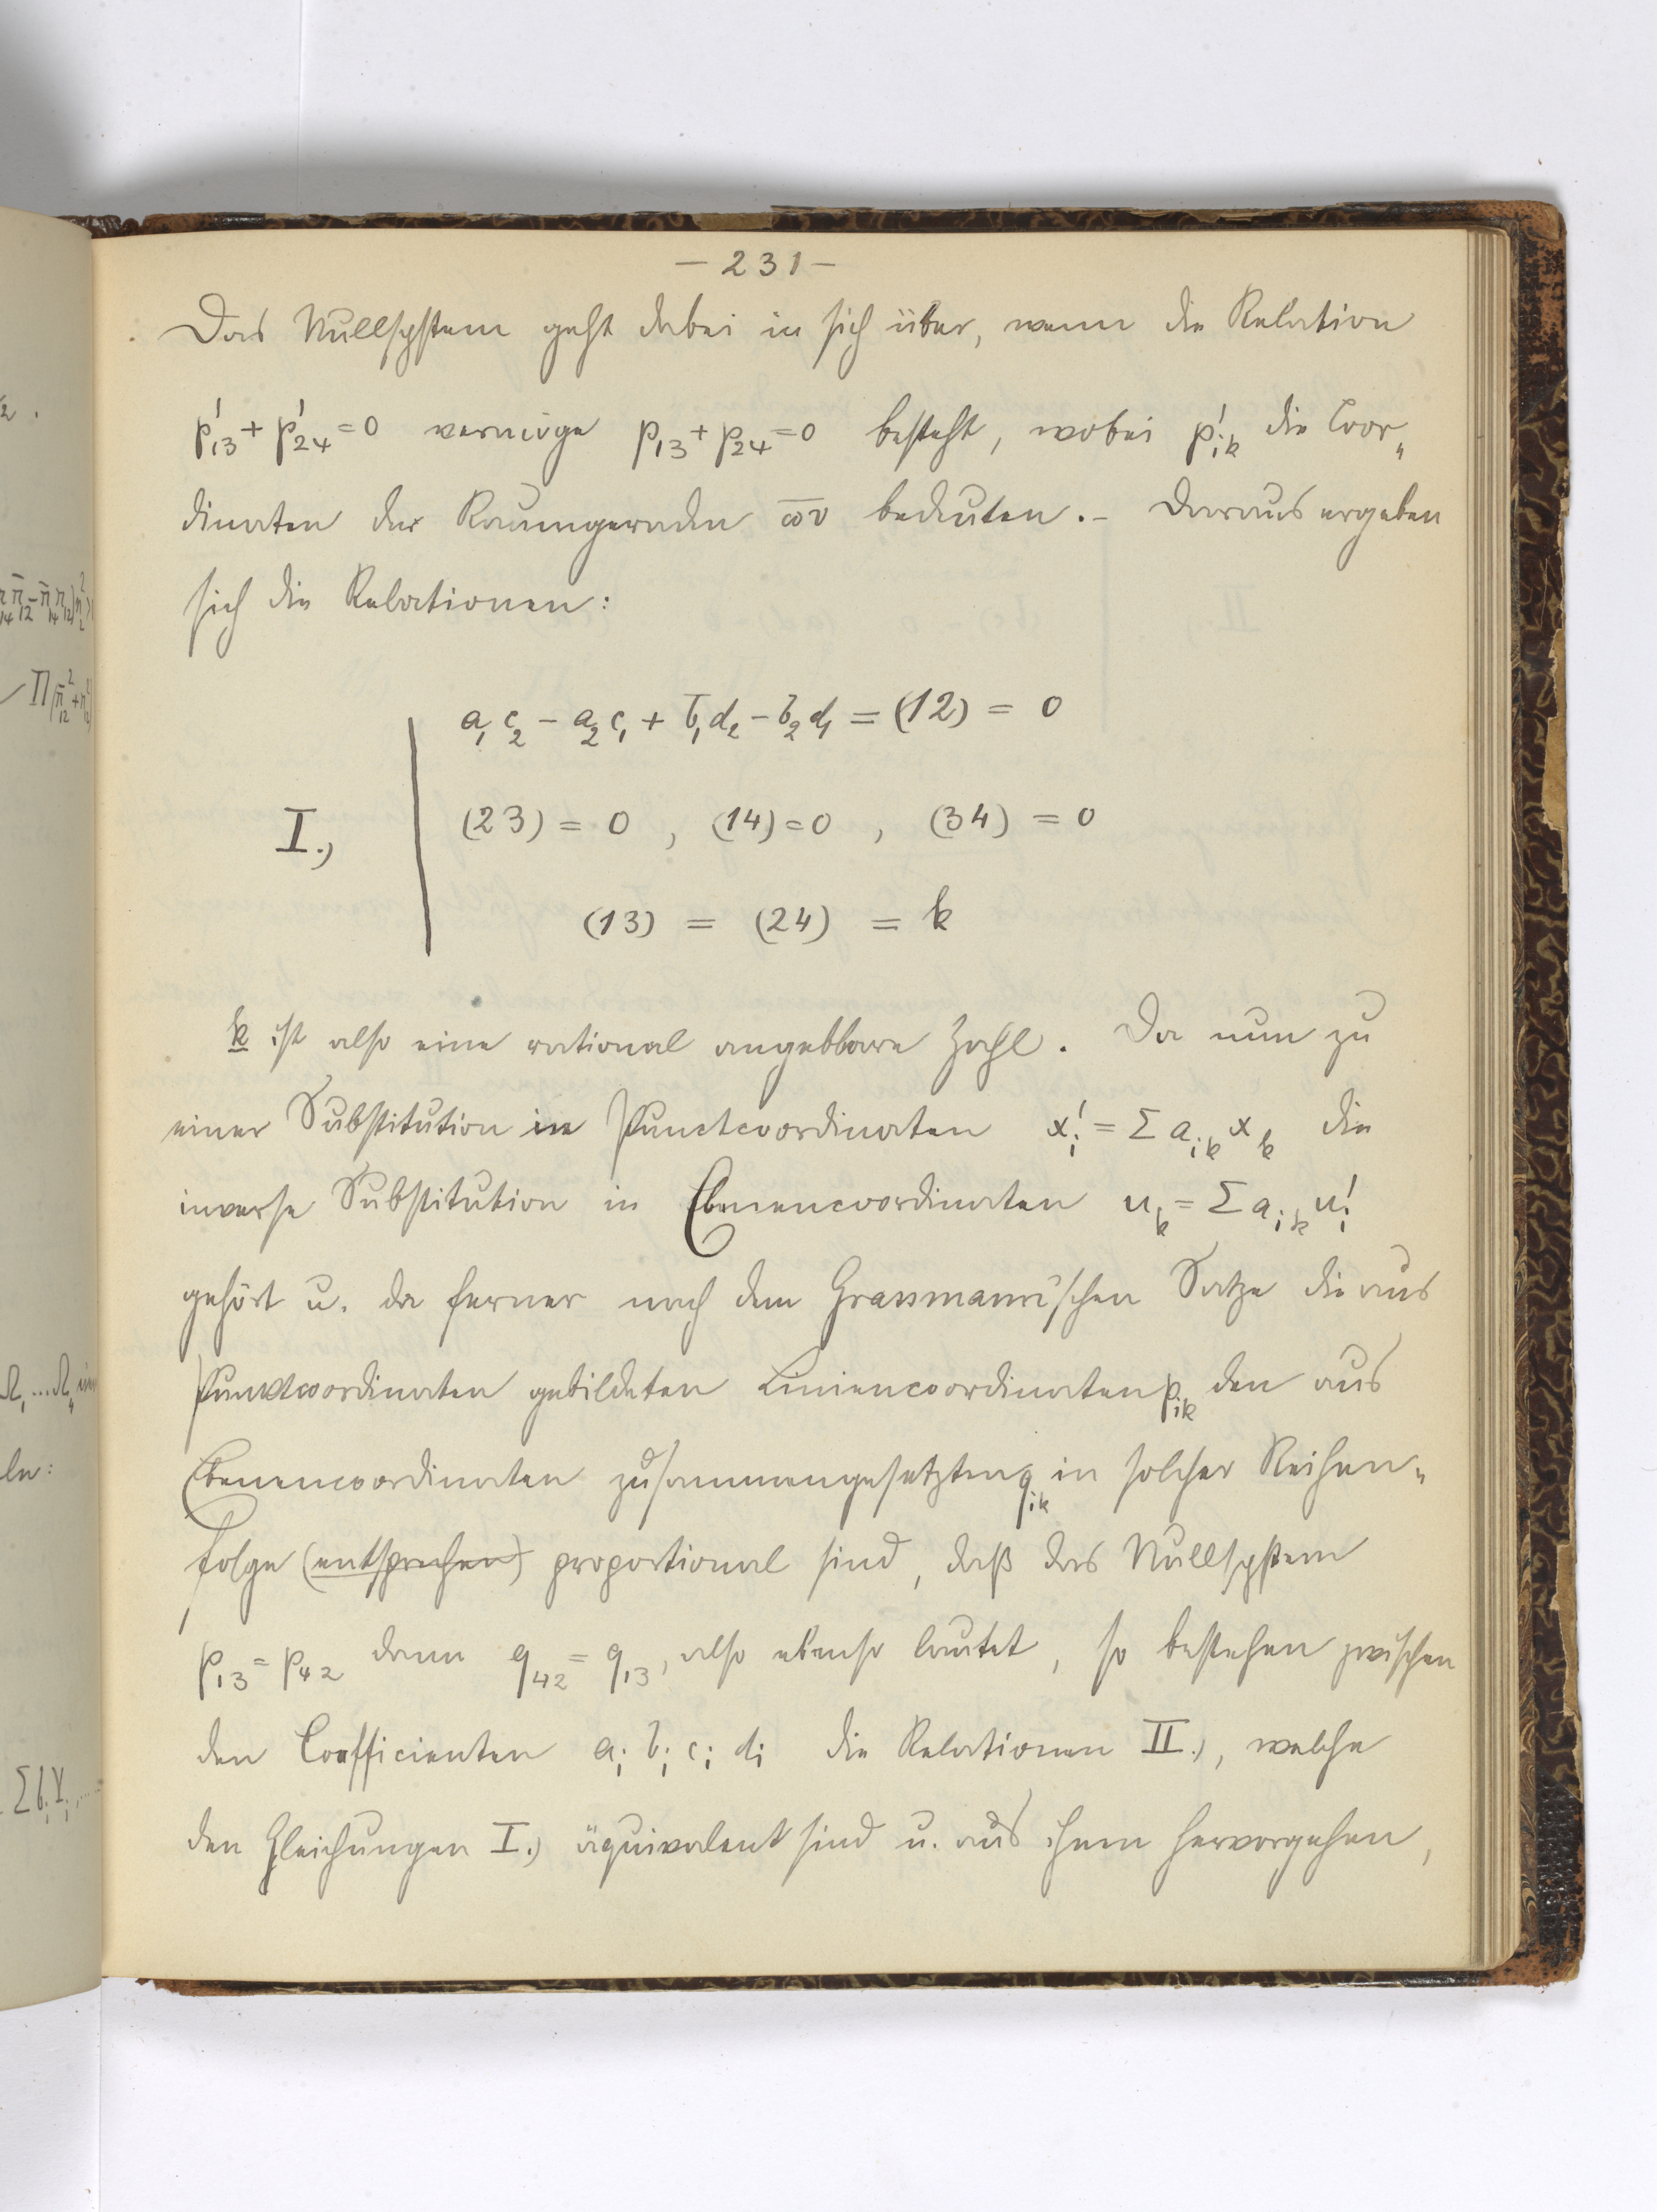 — 231 —
Das Nullsystem geht dabei in sich über, wenn die Relation
p'₁₃ + p'₂₄ = 0 vermöge p₁₃ + p₂₄ = 0 besteht, wobei p'ᵢₖ die Coor„
dinaten der Raumgeraden ω̅v̅ bedeuten. – Daraus ergeben
sich die Relationen:
a₁c₂ − a₂c₁ + b₁d₂ − b₂d₁ = (12) = 0
I.) (23) = 0 , (14) = 0 , (34) = 0
(13) = (24) = k
k ist also eine rational angebbare Zahl. Da nun zu
einer Substitution in Punctcoordinaten x'ᵢ = Σ aᵢₖ xₖ die
inverse Substitution in Ebenencoordinaten uₖ = Σ aᵢₖ u'ᵢ
gehört u. da ferner nach dem Grassmann'schen Satze die aus
Punktcoordinaten gebildeten Liniencoordinaten pᵢₖ den aus
Ebenencoordinaten zusammengesetzten qᵢₖ in solcher Reihen„
folge (entsprechen) proportional sind, daß das Nullsystem
p₁₃ = p₄₂ dann q₄₂ = q₁₃, also ebenso lautet, so bestehen zwischen
den Coefficienten aᵢ bᵢ cᵢ dᵢ die Relationen II.), welche
den Gleichungen I.) äquivalent sind u. aus ihnen hervorgehen,
2 .
ln: